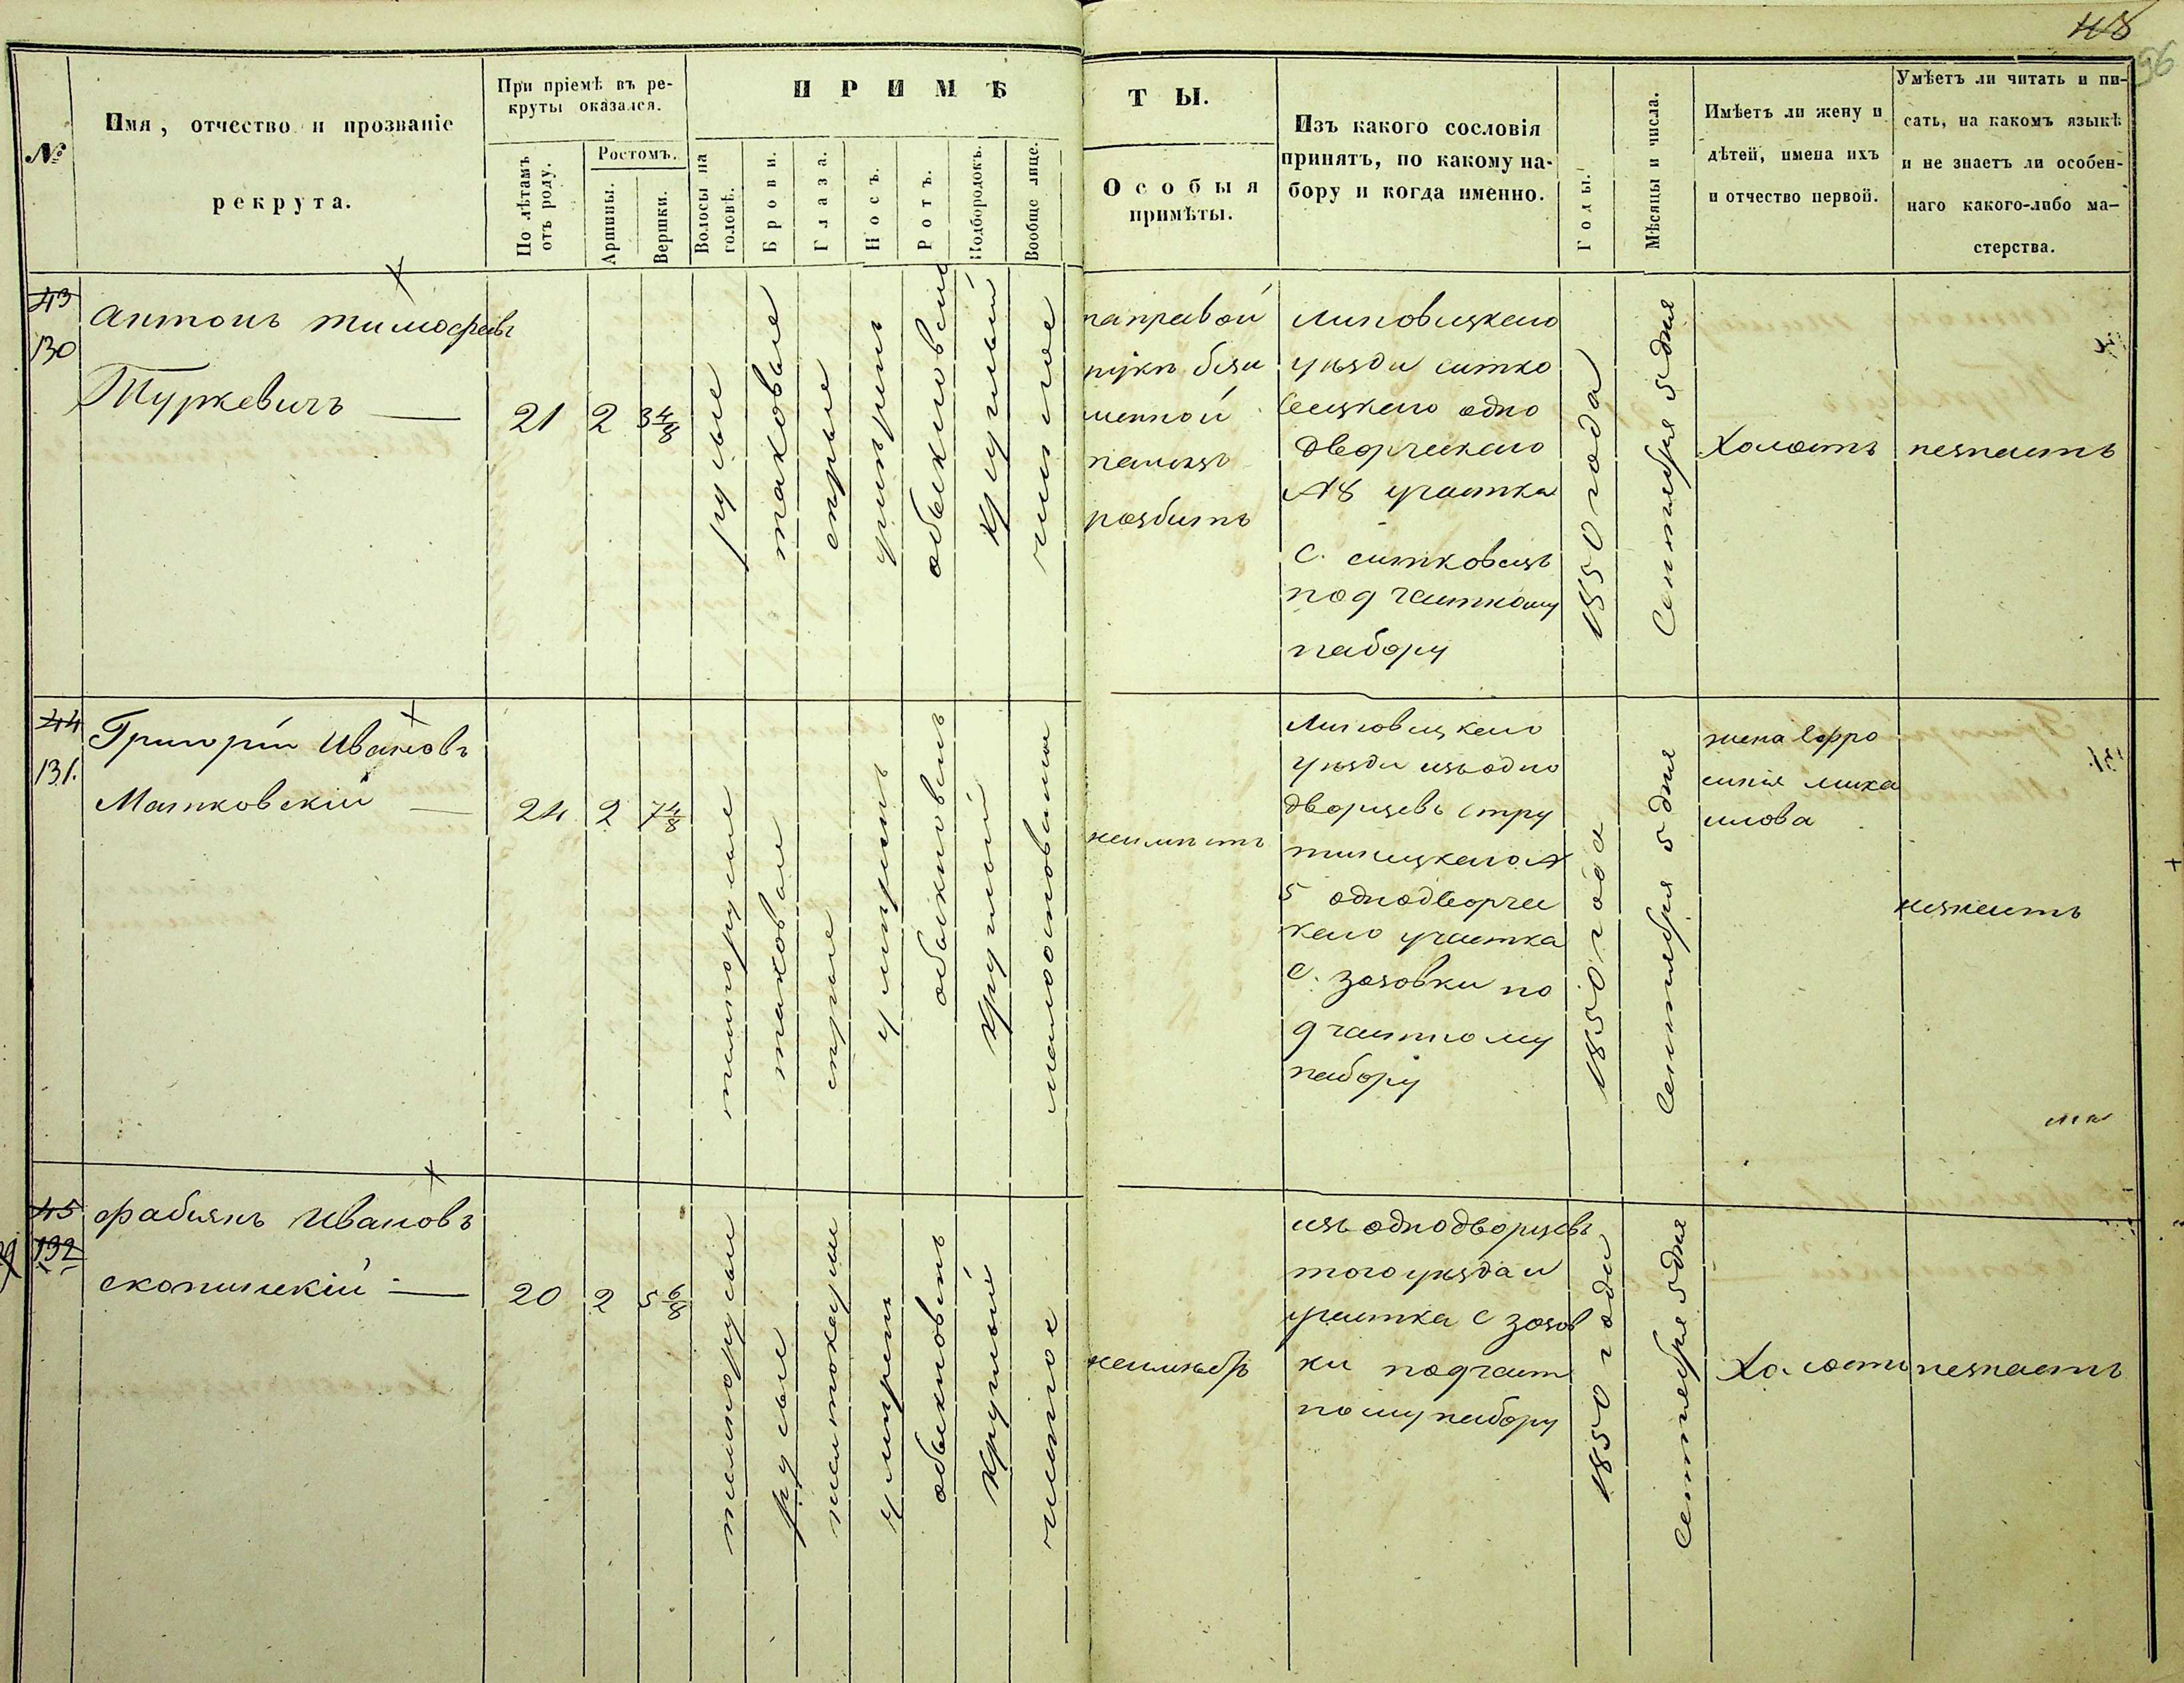 48
96
№
Имя, отчество и прозваніе
рекрута.
При пріемѣ въ ре-
круты оказался.
По лѣтамъ
отъ роду.
Ростомъ.
Аршины.
Вершки.
ПРИМѢ
Волосы на
головѣ.
Брови.
Глаза.
Носъ.
Ротъ.
Подбородокъ.
Вообще лице.
ТЫ.
Особыя
примѣты.
Изъ какого сословія
принятъ, по какому на-
бору и когда именно.
Годы.
Мѣсяцы и числа.
Имѣетъ ли жену и
дѣтей, имена ихъ
и отчество первой.
Умѣетъ ли читать и пи-
сать, на какомъ языкѣ
и не знаетъ ли особен-
наго какого-либо ма-
стерства.
43
130
антонъ тимофѣевъ
Туркевичъ
21
2
3 4/8
русые
таковые
сѣрые
умѣренъ
обыкновенный
круглый
чистое
на правой
рукѣ безы
менной
палецъ
разбитъ
Липовецкаго
уѣзда ситко
вецкаго одно
дворческаго
№8 участка
с. ситковецъ
под частному
набору
1850 года
Сентября 5 дня
Холостъ
незнаетъ
44
131.
Григорій Ивановъ
Матковскій
24
2
7 4/8
темнорусые
таковые
сѣрые
умѣренъ
обыкновенъ
круглый
неимѣетъ
Липовецкаго
уѣзда изъ одно
дворцевъ стру
тинецкаго №
5 однодворчес
каго участка
с. зозовки по
д частному
набору
1850 года
Сентября 5 дня
жена Ефро
синія миха
илова
незнаетъ
45
132
фабіянъ Ивановъ
скопинскій
20
2
5 6/8
темнорусые
русые
умѣренъ
обыкновенъ
круглый
чистое
изъ однодворцевъ
того уѣзда и
участка с зозов
ки под част
ному набору
1850 года
Сентября 5 дня
Холостъ
незнаетъ